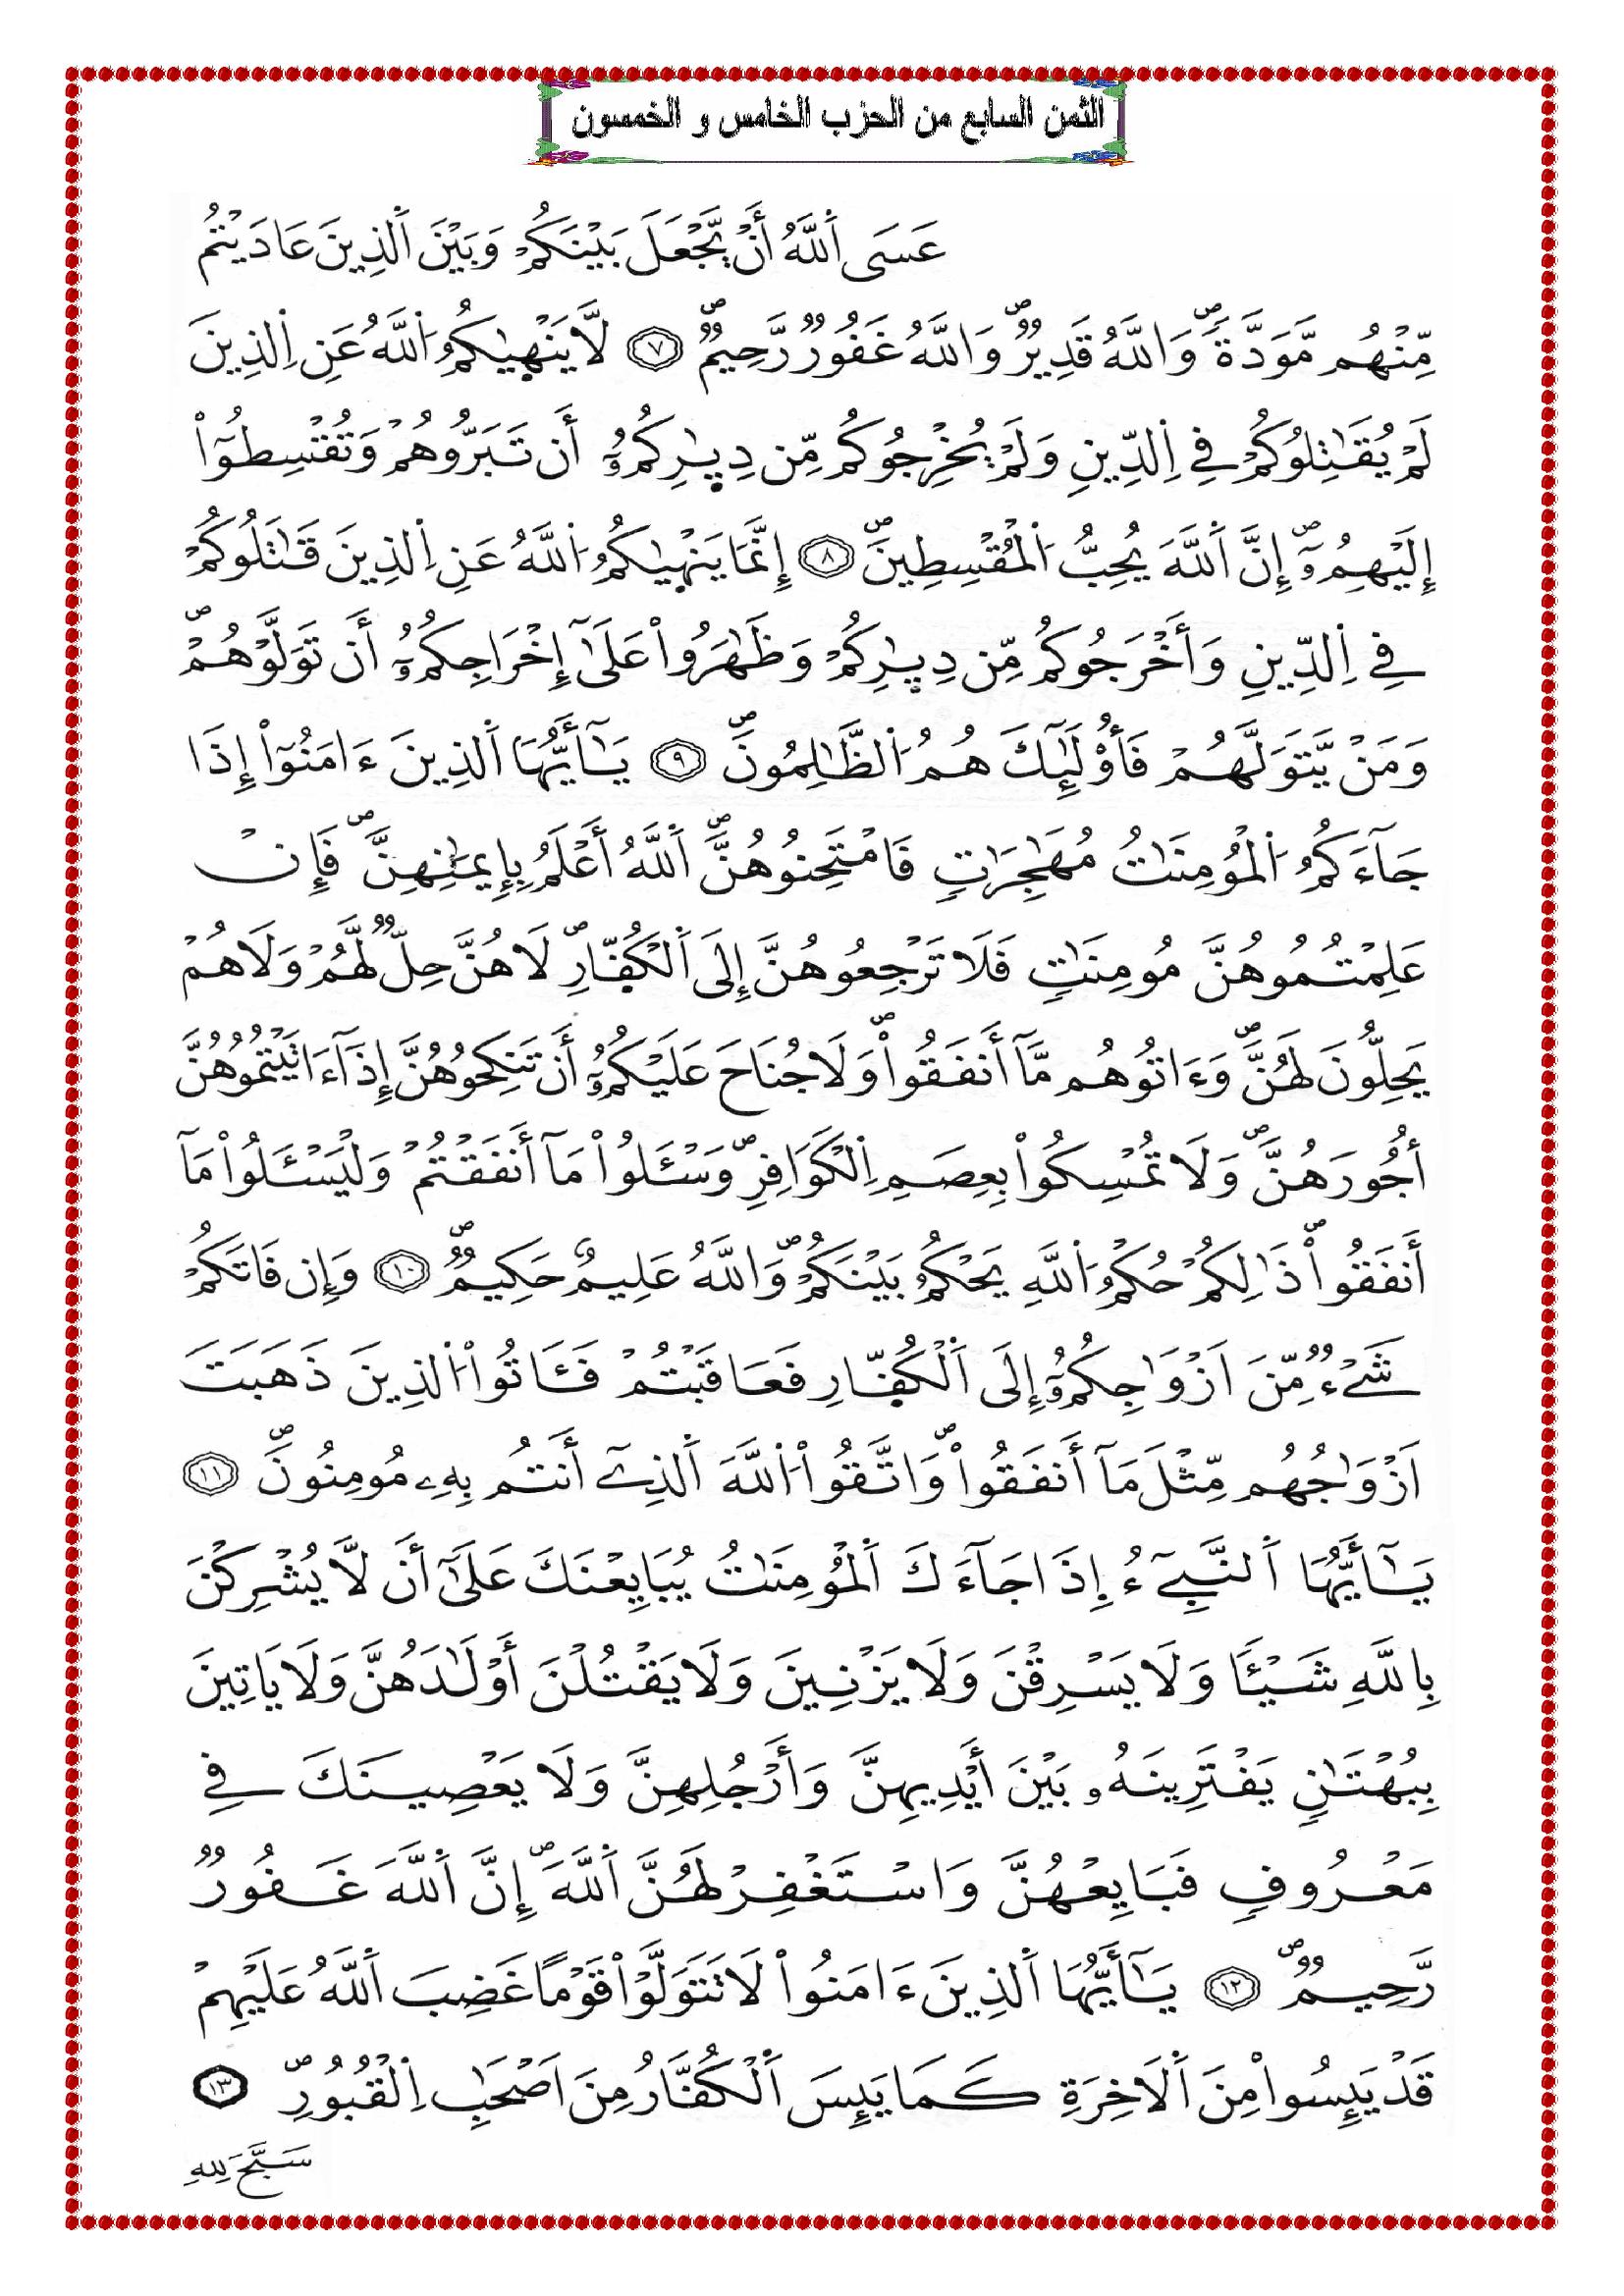 الثمن السابع من الحزب الخامس و الخمسون
عَسَى اَ۬للَّهُ أَنْ يَّجْعَلَ بَيْنَكُمْ وَبَيْنَ اَ۬لذِينَ عَادَيْتُم
مِّنْهُم مَّوَدَّةٗۖ وَاللَّهُ قَدِيرٞۖ وَاللَّهُ غَفُورٞ رَّحِيمٞۖ ٧ لَّا يَنْهٜيٰكُمُ اُ۬للَّهُ عَنِ اِ۬لذِينَ
لَمْ يُقَٰتِلُوكُمْ فِے اِ۬لدِّينِ وَلَمْ يُخْرِجُوكُم مِّن دِيٰٜرِكُمُۥٓ أَن تَبَرُّوهُمْ وَتُقْسِطُوٓاْ
إِلَيْهِمُۥٓۖ إِنَّ اَ۬للَّهَ يُحِبُّ اُ۬لْمُقْسِطِينَۖ ٨ إِنَّمَا يَنْهٜيٰكُمُ اُ۬للَّهُ عَنِ اِ۬لذِينَ قَٰتَلُوكُمْ
فِے اِ۬لدِّينِ وَأَخْرَجُوكُم مِّن دِيٰٜرِكُمْ وَظَٰهَرُواْ عَلَىٰٓ إِخْرَاجِكُمُۥٓ أَن تَوَلَّوْهُمْۖ
وَمَنْ يَّتَوَلَّهُمْ فَأُوْلَٰٓئِكَ هُمُ اُ۬لظَّٰلِمُونَۖ ٩ يَٰٓأَيُّهَا اَ۬لذِينَ ءَامَنُوٓاْ إِذَا
جَآءَكُمُ اُ۬لْمُؤْمِنَٰتُ مُهَٰجِرَٰتٖ فَامْتَحِنُوهُنَّۖ اَ۬للَّهُ أَعْلَمُ بِإِيمَٰنِهِنَّۖ فَإِنْ
عَلِمْتُمُوهُنَّ مُومِنَٰتٖ فَلَا تَرْجِعُوهُنَّ إِلَى اَ۬لْكُفّٜارِۖ لَا هُنَّ حِلّٞ لَّهُمْ وَلَا هُمْ
يَحِلُّونَ لَهُنَّۖ وَءَاتُوهُم مَّآ أَنفَقُواْۖ وَلَا جُنَاحَ عَلَيْكُمُۥٓ أَن تَنكِحُوهُنَّ إِذَآ ءَاتَيْتُمُوهُنَّ
أُجُورَهُنَّۖ وَلَا تُمْسِكُواْ بِعِصَمِ اِ۬لْكَوَافِرِۖ وَسْـَٔلُواْ مَآ أَنفَقْتُمْ وَلْيَسْـَٔلُواْ مَآ
أَنفَقُواْۖ ذَٰلِكُمْ حُكْمُ اُ۬للَّهِ يَحْكُمُ بَيْنَكُمْۖ وَاللَّهُ عَلِيمٌ حَكِيمٞۖ ١٠ وَإِن فَاتَكُمْ
شَےْءٞ مِّنَ اَزْوَٰجِكُمُۥٓ إِلَى اَ۬لْكُفّٜارِ فَعَاقَبْتُمْ فَـَٔاتُواْ اُ۬لذِينَ ذَهَبَتَ
اَزْوَٰجُهُم مِّثْلَ مَآ أَنفَقُواْۖ وَاتَّقُواْ اُ۬للَّهَ اَ۬لذِےٓ أَنتُم بِهِۦ مُومِنُونَۖ ١١
يَٰٓأَيُّهَا اَ۬لنَّبِےٓءُ إِذَا جَآءَكَ اَ۬لْمُؤْمِنَٰتُ يُبَايِعْنَكَ عَلَىٰٓ أَن لَّا يُشْرِكْنَ
بِاللَّهِ شَيْـٔاٗ وَلَا يَسْرِقْنَ وَلَا يَزْنِينَ وَلَا يَقْتُلْنَ أَوْلَٰدَهُنَّ وَلَا يَاتِينَ
بِبُهْتَٰنٖ يَفْتَرِينَهُۥ بَيْنَ أَيْدِيهِنَّ وَأَرْجُلِهِنَّ وَلَا يَعْصِينَكَ فِے
مَعْرُوفٖ فَبَايِعْهُنَّ وَاسْتَغْفِرْ لَهُنَّ اَ۬للَّهَۖ إِنَّ اَ۬للَّهَ غَفُورٞ
رَّحِيمٞۖ ١٢ يَٰٓأَيُّهَا اَ۬لذِينَ ءَامَنُواْ لَا تَتَوَلَّوْاْ قَوْماً غَضِبَ اَ۬للَّهُ عَلَيْهِمْ
قَدْ يَئِسُواْ مِنَ اَ۬لَاخِرَةِ كَمَا يَئِسَ اَ۬لْكُفَّارُ مِنَ اَصْحَٰبِ اِ۬لْقُبُورِۖ ١٣
سَبَّحَ لِلهِ